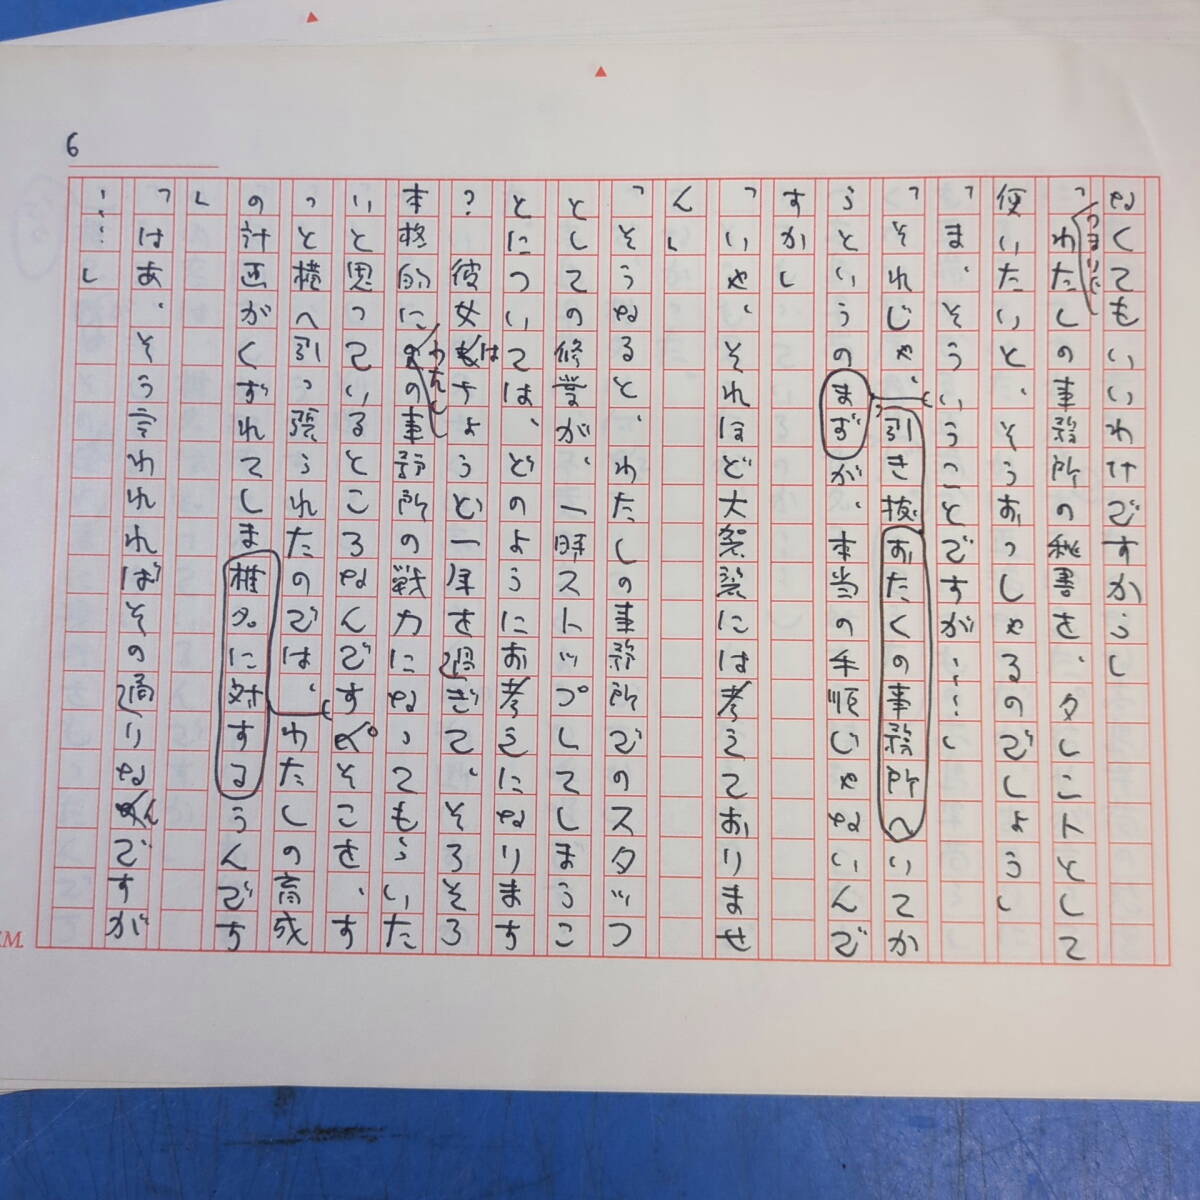 6
なくてもいいわけですから」
「つまりだ
わたしの事務所の秘書を、タレントとして
使いたいと、そうおっしゃるのでしょう」
「ま、そういうことですが……」
「それじゃ、引き抜おたくの事務所へいてか
らというのまずが、本当の手順じゃないんで
すか」
「いや、それほど大袈裟には考えておりませ
ん」
「そうなると、わたしの事務所でのスタッフ
としての修業が、一時ストップしてしまうこ
とについては、どのようにお考えになります
?彼女はちょうど一年を過ぎて、そろそろ
本格的にわたしの事務所の戦力になってもらいた
いと思っているところなんです。そこを、す
っと横へ引っ張られたのでは、わたしの育成
の計画がくずれてしま椎名に対するうんです
」
「はあ、そう言われればその通りなんですが
……」